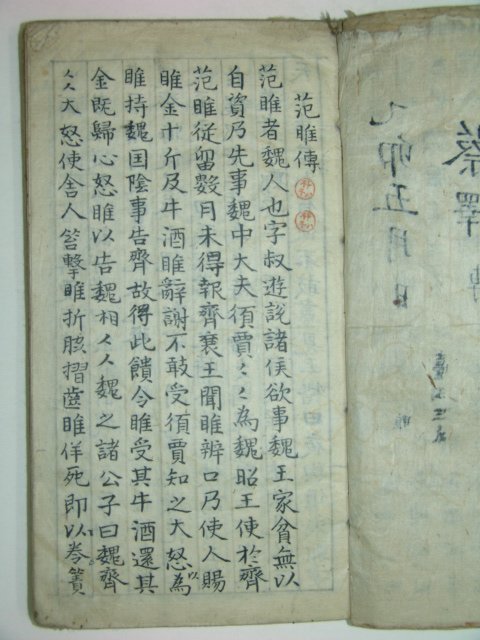 蔡澤傳
乙卯五月日
范睢傳
范睢者魏人也字叔遊說諸侯欲事魏王家貧無以
自資乃先事魏中大夫須賈〻〻為魏昭王使於齊
范睢從留數月未得報齊襄王聞睢辨口乃使人賜
睢金十斤及牛酒睢辭謝不敢受須賈知之大怒以為
睢持魏囯陰事告齊故得此饋令睢受其牛酒還其
金既歸心怒睢以告魏相〻〻魏之諸公子曰魏齊
〻〻大怒使舍人笞擊睢折脇摺齒睢佯死即以卷簀